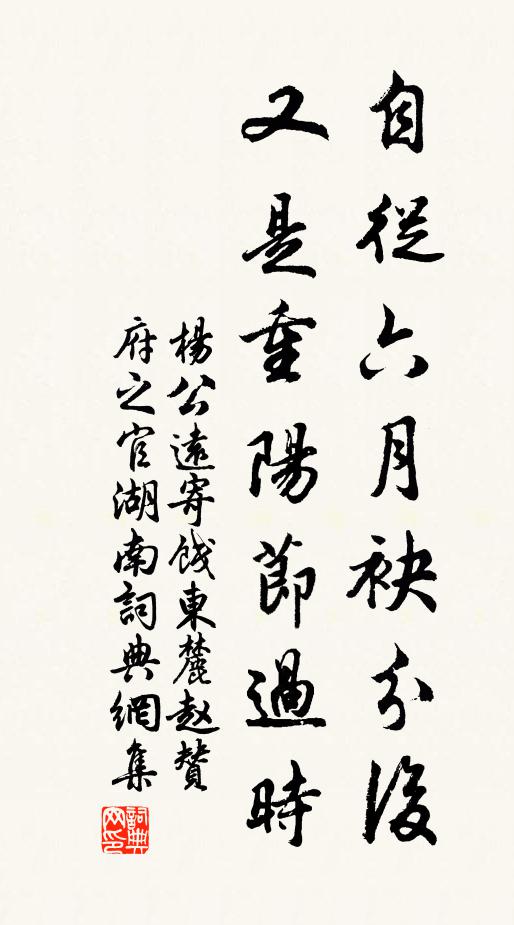 自從六月袂分後
又是重陽節過時
楊公遠寄餞東麓趙贊
府之官湖南詞典網集
詞典網印